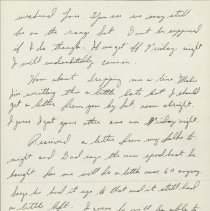 weekend Love. You see we may still
be on the range Sat. Don't be surprised
if I do though. If we get off Friday night
I will undoubtedly come in.
How about dropping me a line Mike.
I'm writing this a little late but I should
get a letter from you by Sat noon alright.
I guess I got yours this one on Friday night
Received a letter from my folks to
night and Dad say the new speed boat he
bought for me will be a little over 60 anyway.
Says he had it up to that and it still had
a little left. I guess he will be able to